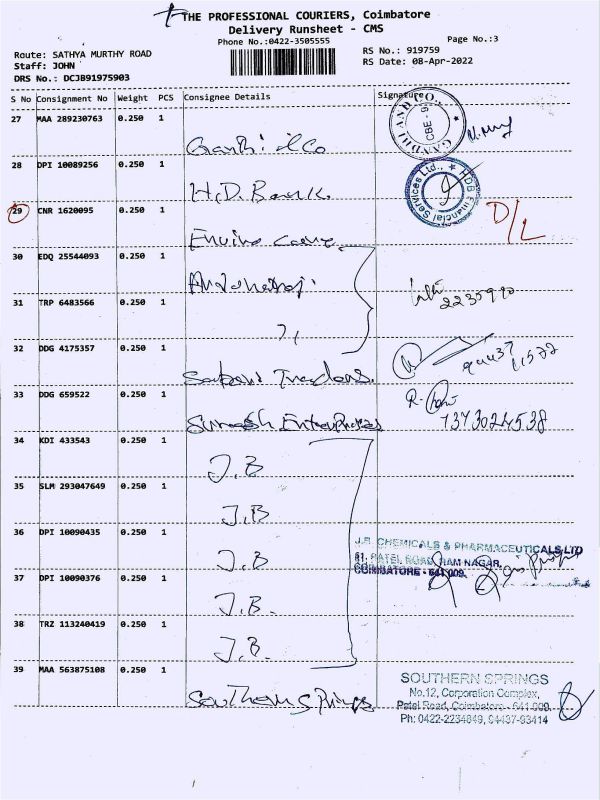 THE PROFESSIONAL COURIERS, Coimbatore
Delivery Runsheet - CMS
Phone No.:0422-3505555
Page No.:3
Route: SATHYA MURTHY ROAD
RS No.: 919759
Staff: JOHN
RS Date: 08-Apr-2022
DRS No.: DCJB91975903
S No Consignment No Weight PCS Consignee Details Signature
27 MAA 289230763 0.250 1
GANDHI AND CO.
CBE - 9
28 DPI 10089256 0.250 1
H.D. Bank
HDB Financial Services Ltd.,
29 CNR 1620095 0.250 1
D/L
30 EDQ 25544093 0.250 1
31 TRP 6483566 0.250 1
32 DDG 4175357 0.250 1
33 DDG 659522 0.250 1
Suresh Enterprises
34 KDI 433543 0.250 1
J.B
35 SLM 293047649 0.250 1
J.B
36 DPI 10090435 0.250 1
J.B
J.B. CHEMICALS & PHARMACEUTICALS LTD
61, PATEL ROAD, RAM NAGAR,
COIMBATORE - 641 009.
37 DPI 10090376 0.250 1
J.B.
38 TRZ 113240419 0.250 1
J.B.
39 MAA 563875108 0.250 1
Southern Springs
SOUTHERN SPRINGS
No.12, Corporation Complex,
Patel Road, Coimbatore - 641 009.
Ph: 0422-2234849, 94437-93414